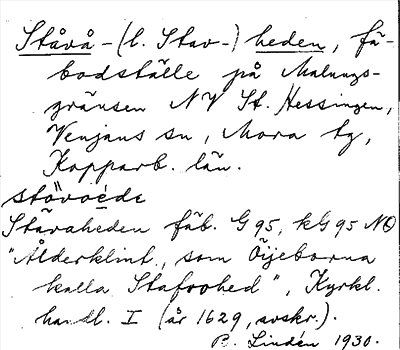 Ståvå-(l. Stav-) heden, fä-
bodställe på Malungs-
gränsen NV St. Hessingen,
Venjans sn, Mora tg,
Kopparb. län.
stövoede
Stävaheden fäb. G 95, kG 95 NO
"Ålderklint, som Öijeborna
kalla Stafvohed", Kyrkl.
handl. I (år 1629, avskr.).
B. Lindén 1930.